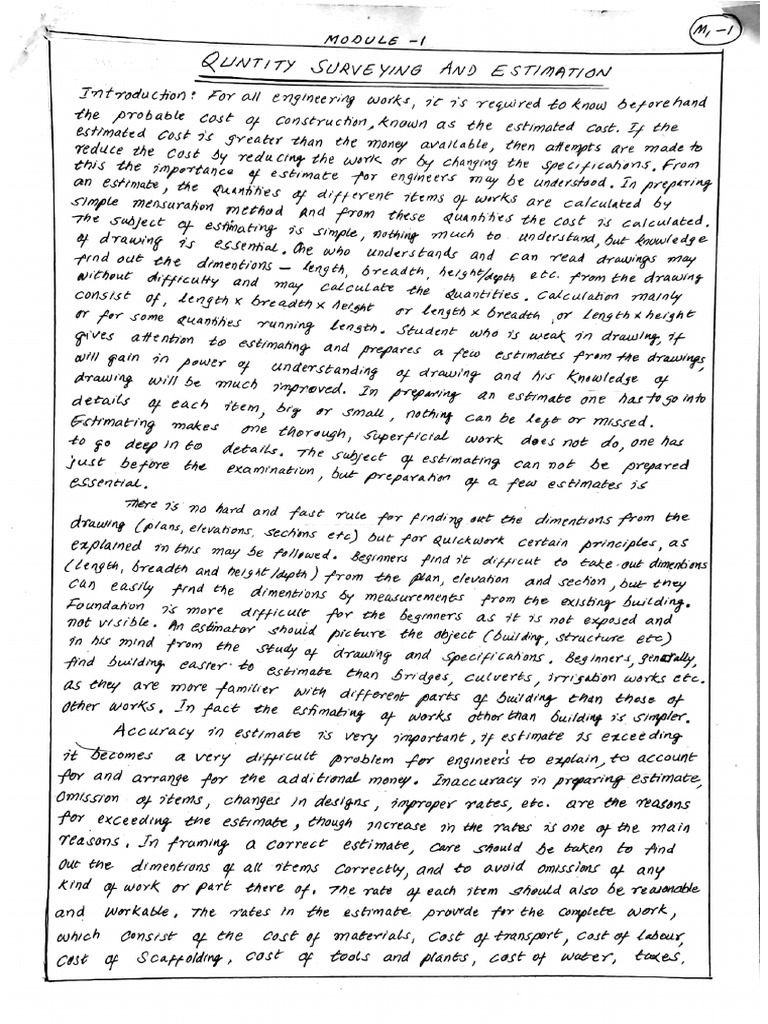 M,-1
MODULE -1
QUNTITY SURVEYING AND ESTIMATION
Introduction: For all engineering works, it is required to know beforehand
the probable cost of construction, known as the estimated cost. If the
estimated cost is greater than the money available, then attempts are made to
reduce the cost by reducing the work or by changing the specifications. From
this the importance of estimate for engineers may be understood. In preparing
an estimate, the quantities of different items of works are calculated by
simple mensuration method and from these quantities the cost is calculated.
The subject of estimating is simple, nothing much to understand, but knowledge
of drawing is essential. One who understands and can read drawings may
find out the dimentions - length, breadth, height/depth etc. from the drawing
without difficulty and may calculate the quantities. Calculation mainly
consist of, length x breadth x height or length x breadth, or length x height
or for some quantities running length. Student who is weak in drawing, if
gives attention to estimating and prepares a few estimates from the drawings,
will gain in power of understanding of drawing and his knowledge of
drawing will be much improved. In preparing an estimate one has to go into
details of each item, big or small, nothing can be left or missed.
Estimating makes one thorough, superficial work does not do, one has
to go deep in to details. The subject of estimating can not be prepared
just before the examination, but preparation of a few estimates is
essential.
There is no hard and fast rule for finding out the dimentions from the
drawing (plans, elevations, sections etc) but for quickwork certain principles, as
explained in this may be followed. Beginners find it difficut to take out dimentions
(length, breadth and height/depth) from the plan, elevation and section, but they
can easily find the dimentions by measurements from the existing building.
Foundation is more difficult for the beginners as it is not exposed and
not visible. An estimator should picture the object (building, structure etc)
in his mind from the study of drawing and specifications. Beginners, generally,
find building easier to estimate than bridges, culverts, irrigation works etc.
as they are more familier with different parts of building than those of
other works. In fact the estimating of works other than building is simpler.
Accuracy in estimate is very important, if estimate is exceeding
it becomes a very difficult problem for engineers to explain, to account
for and arrange for the additional money. Inaccuracy in preparing estimate,
omission of items, changes in designs, improper rates, etc. are the reasons
for exceeding the estimate, though increase in the rates is one of the main
reasons. In framing a correct estimate, care should be taken to find
out the dimentions of all items correctly, and to avoid omissions of any
kind of work or part there of. The rate of each item should also be reasonable
and workable. The rates in the estimate provide for the complete work,
which consist of the cost of materials, cost of transport, cost of labour,
cost of scaffolding, cost of tools and plants, cost of water, taxes,